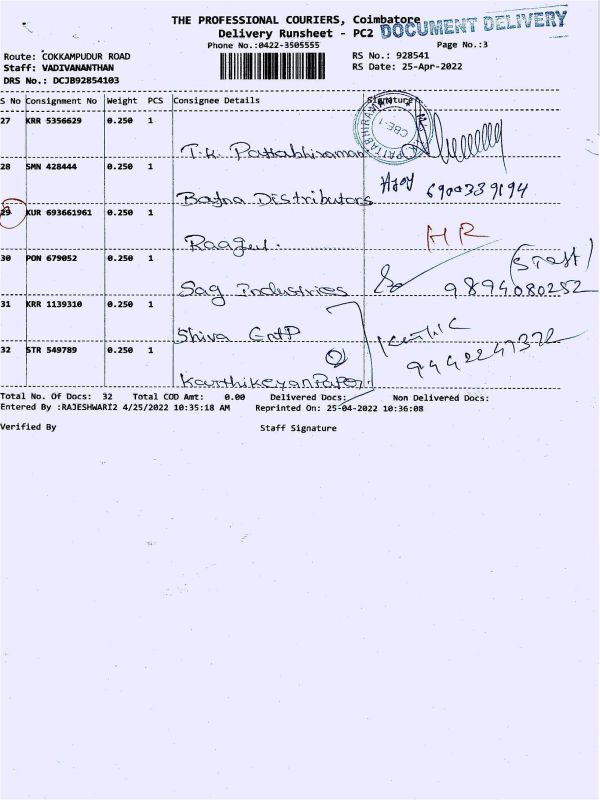 THE PROFESSIONAL COURIERS, Coimbatore
Delivery Runsheet - PC2
DOCUMENT DELIVERY
Phone No.:0422-3505555
Page No.:3
Route: COKKAMPUDUR ROAD
RS No.: 928541
Staff: VADIVANANTHAN
RS Date: 25-Apr-2022
DRS No.: DCJB92854103
S No Consignment No Weight PCS Consignee Details Signature
27 KRR 5356629 0.250 1
T.K. Pattabhiraman
28 SMN 428444 0.250 1
Bafna Distributors
29 KUR 693661961 0.250 1
HR
30 PON 679052 0.250 1
Sag Industries
9894080252
31 KRR 1139310 0.250 1
Shiva
32 STR 549789 0.250 1
Total No. Of Docs: 32 Total COD Amt: 0.00 Delivered Docs: Non Delivered Docs:
Entered By :RAJESHWARI2 4/25/2022 10:35:18 AM Reprinted On: 25-04-2022 10:36:08
Verified By Staff Signature